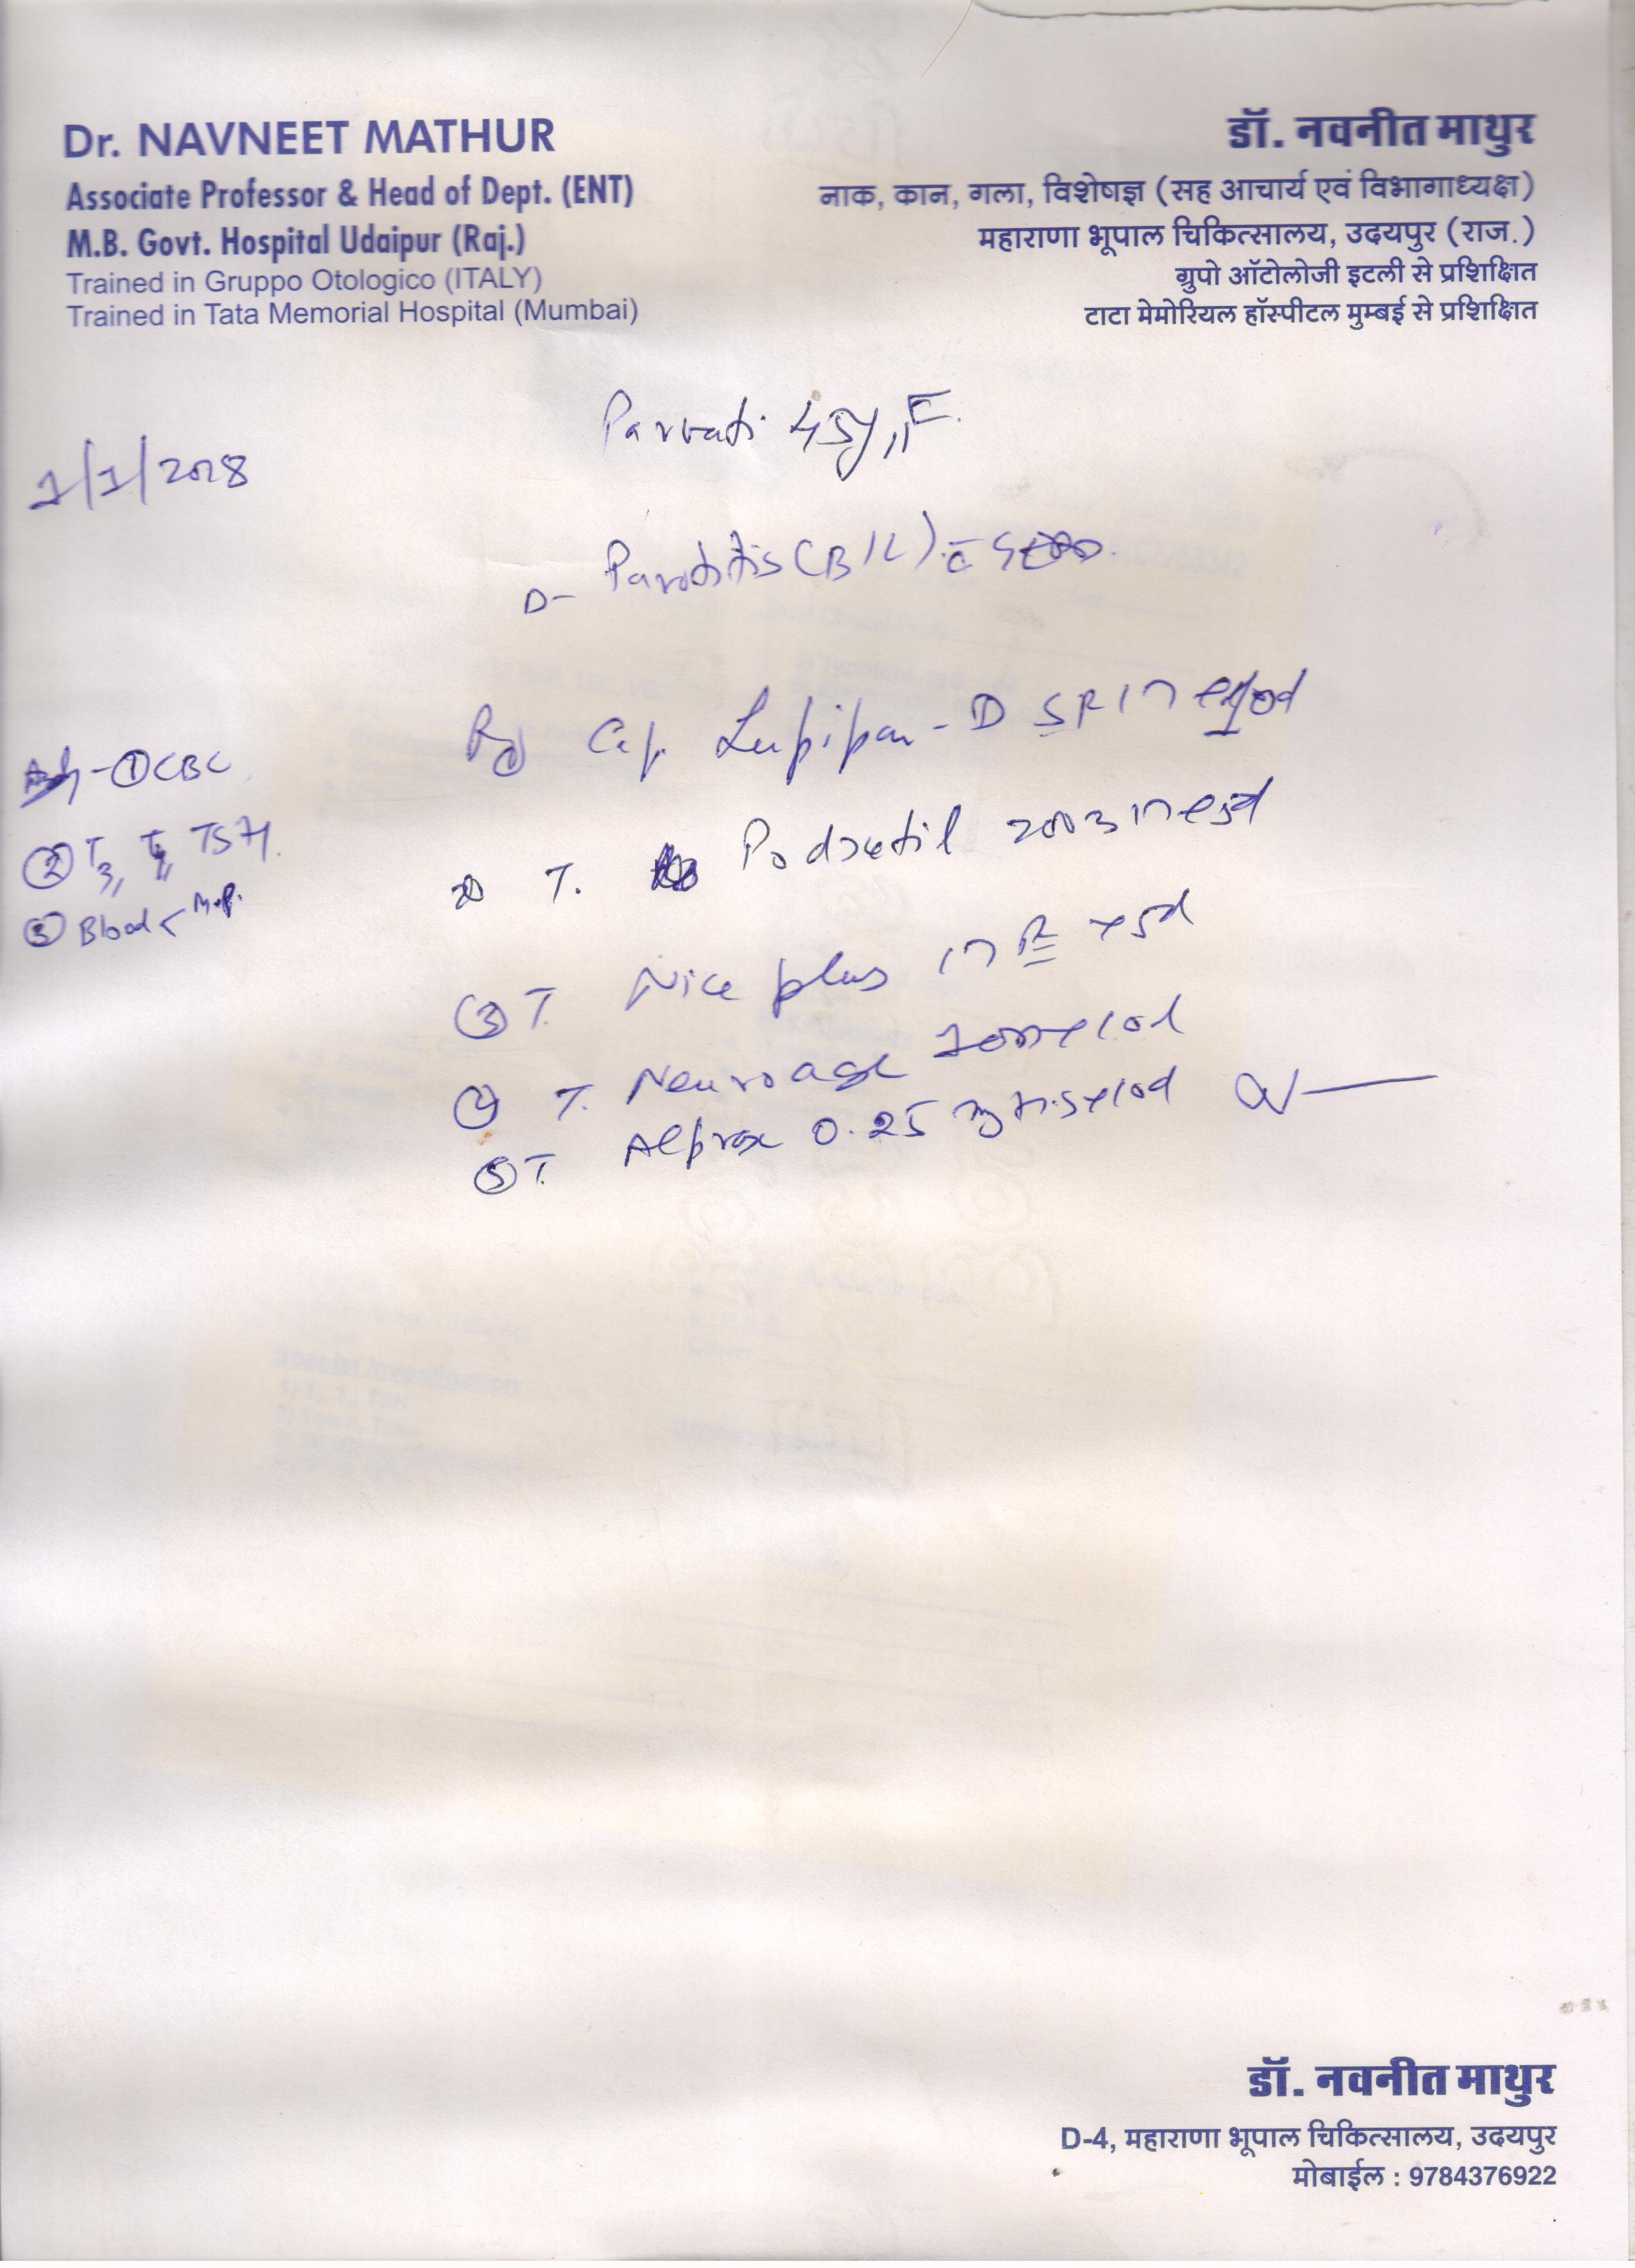 Dr. NAVNEET MATHUR
Associate Professor & Head of Dept. (ENT)
M.B. Govt. Hospital Udaipur (Raj.)
Trained in Gruppo Otologico (ITALY)
Trained in Tata Memorial Hospital (Mumbai)
डॉ. नवनीत माथुर
नाक, कान, गला, विशेषज्ञ (सह आचार्य एवं विभागाध्यक्ष)
महाराणा भूपाल चिकित्सालय, उदयपुर (राज.)
ग्रुपो ऑटोलोजी इटली से प्रशिक्षित
टाटा मेमोरियल हॉस्पीटल मुम्बई से प्रशिक्षित
Parvati 45y,,F.
1/1/2018
D- Parotitis (B/L)
Cap. Lupipan-D SR
① CBC
② T3, T4, TSH.
③ Blood
T. Podxetil 200
③ T. Nice plus x5d
④ T. Neuroage x10d
⑤ T. Alprax 0.25 mg x10d
डॉ. नवनीत माथुर
D-4, महाराणा भूपाल चिकित्सालय, उदयपुर
मोबाईल : 9784376922